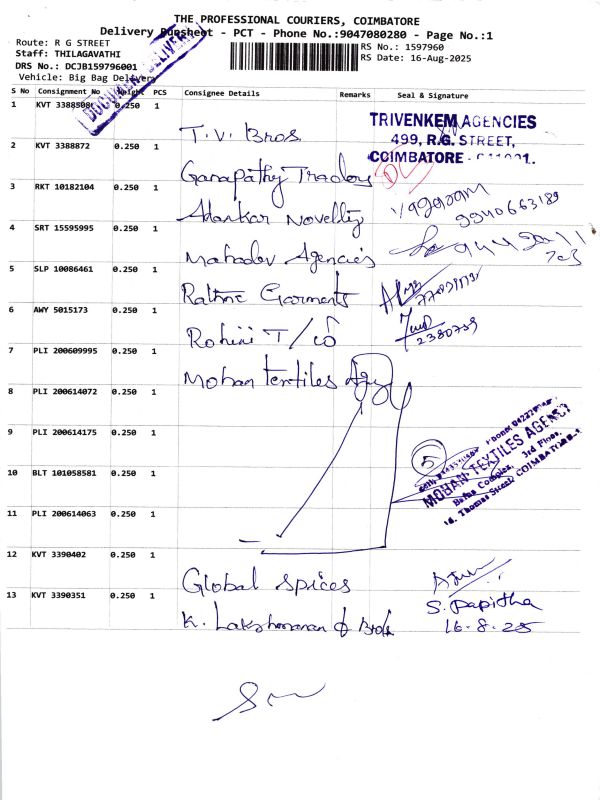 THE PROFESSIONAL COURIERS, COIMBATORE
Delivery Runsheet - PCT - Phone No.:9047080280 - Page No.:1
Route: R G STREET
Staff: THILAGAVATHI
DRS No.: DCJB159796001
Vehicle: Big Bag Delivery
RS No.: 1597960
RS Date: 16-Aug-2025
DOCUMENT DELIVERY
S No Consignment No Weight PCS Consignee Details Remarks Seal & Signature
1 KVT 0.250 1 T.V. Bros
TRIVENKEM AGENCIES
499, R.G. STREET,
COIMBATORE -
2 KVT 3388872 0.250 1 Ganapathy Traders
3 RKT 10182104 0.250 1 Alankar Novelty
9940663189
4 SRT 15595995 0.250 1 Mahadev Agencies
5 SLP 10086461 0.250 1 Garments
6 AWY 5015173 0.250 1 Rohini T/co
2380739
7 PLI 200609995 0.250 1 Mohan textiles Agy
8 PLI 200614072 0.250 1
9 PLI 200614175 0.250 1
5
MOHAN TEXTILES AGENCY
Complex, 3rd Floor,
Thomas Street COIMBATORE-1
10 BLT 101058581 0.250 1
11 PLI 200614063 0.250 1
12 KVT 3390402 0.250 1 Global Spices
13 KVT 3390351 0.250 1 K. Lakshmanan & Bros
S. Papitha
16-8-25